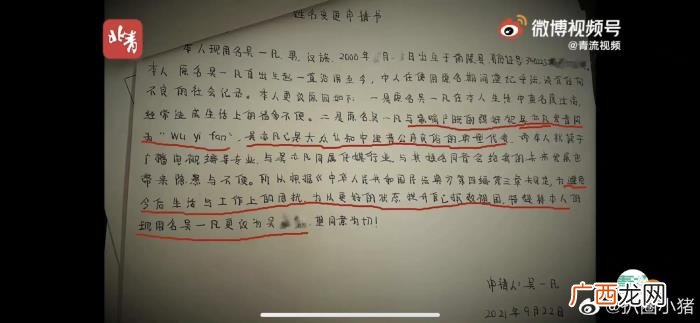 北青
微博视频号
@青流视频
姓名变更申请书
本人现用名吴一凡,男,汉族,2000年 月 日出生于南陵县,身份证号340223
本人原名吴一凡自出生起一直沿用至今,本人在使用原名期间遵纪守法,没有任何
不良的社会记录。本人更改原因如下:一是原名吴一凡在本人生活中重名
经常造成生活上的诸多不便。二是原名吴一凡与 吴亦凡发音同
为"Wu yi fan",吴亦凡已是大众认知中违背公序良俗的典型代表,而本人就读于
广播电视 专业,与吴亦凡同属传媒行业,与其姓名同音会给我的未来发展也
带来隐患与不便。所以根据《中华人民共和国民法典》第四编第三章 规定,为避免
今后生活与工作上的困扰,为以更好的状态 报效祖国,特提将本人的
现用名吴一凡更改为吴 ,望同意为切!
申请人:吴一凡
2021年9月22日
@扒圈小猪
广西龙网